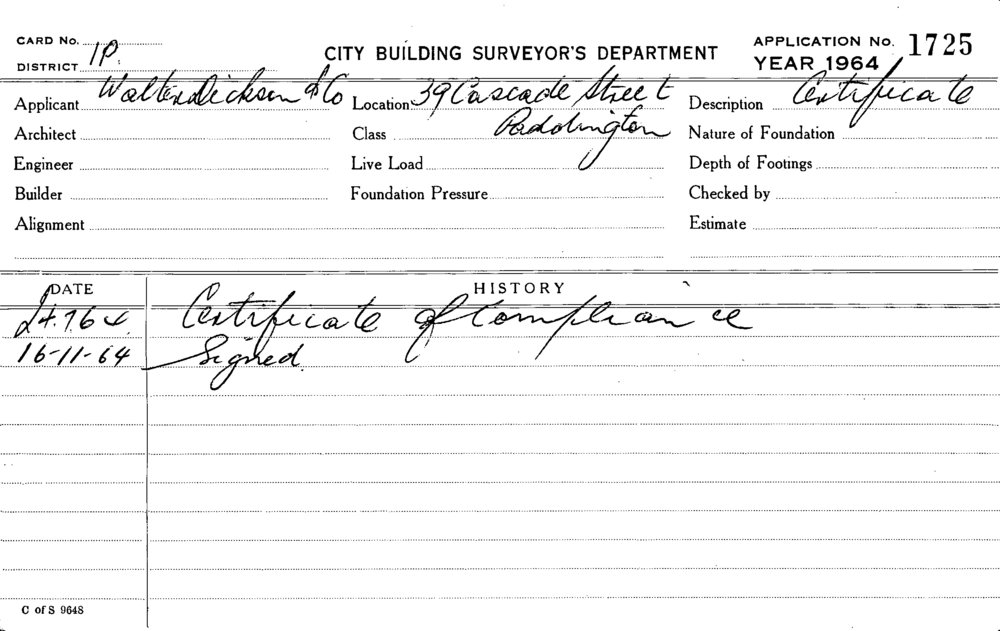 CARD No.
DISTRICT 1P.
CITY BUILDING SURVEYOR'S DEPARTMENT
APPLICATION No. 1725
YEAR 1964
Applicant Walter Dickson & Co Location 39 Cascade Street Description Certificate
Architect Class Paddington Nature of Foundation
Engineer Live Load Depth of Footings
Builder Foundation Pressure Checked by
Alignment Estimate
DATE HISTORY
24.7.64 Certificate of Compliance
16-11-64 Signed.
C of S 9648